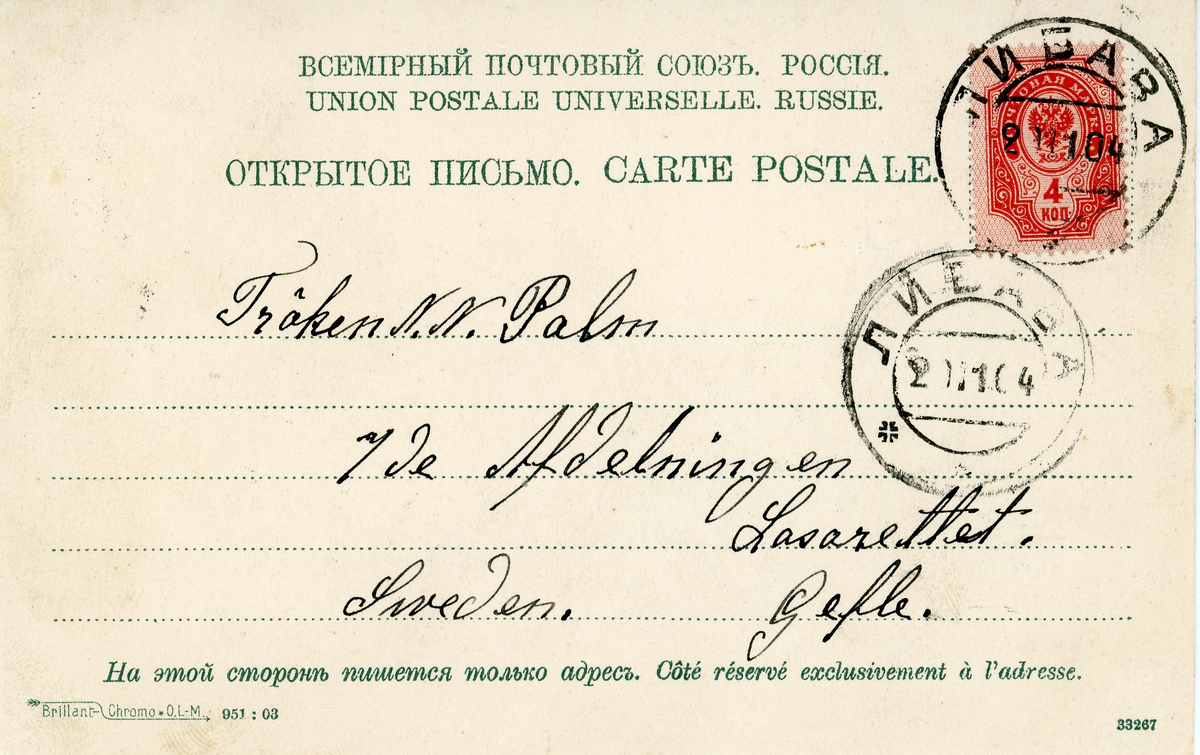 ВСЕМІРНЫЙ ПОЧТОВЫЙ СОЮЗЪ. РОССІЯ.
UNION POSTALE UNIVERSELLE. RUSSIE.
ОТКРЫТОЕ ПИСЬМО. CARTE POSTALE.
ЛИБАВА
ПОЧТОВАЯ МАРКА
4
КОП
ЛИБАВА
Fröken N. N. Palm
7de Afdelningen
Lasarettet.
Sweden. Gefle.
На этой сторонѣ пишется только адресъ. Côté réservé exclusivement à l'adresse.
Brillant-Chromo * O.L-M. 951 : 03
33267